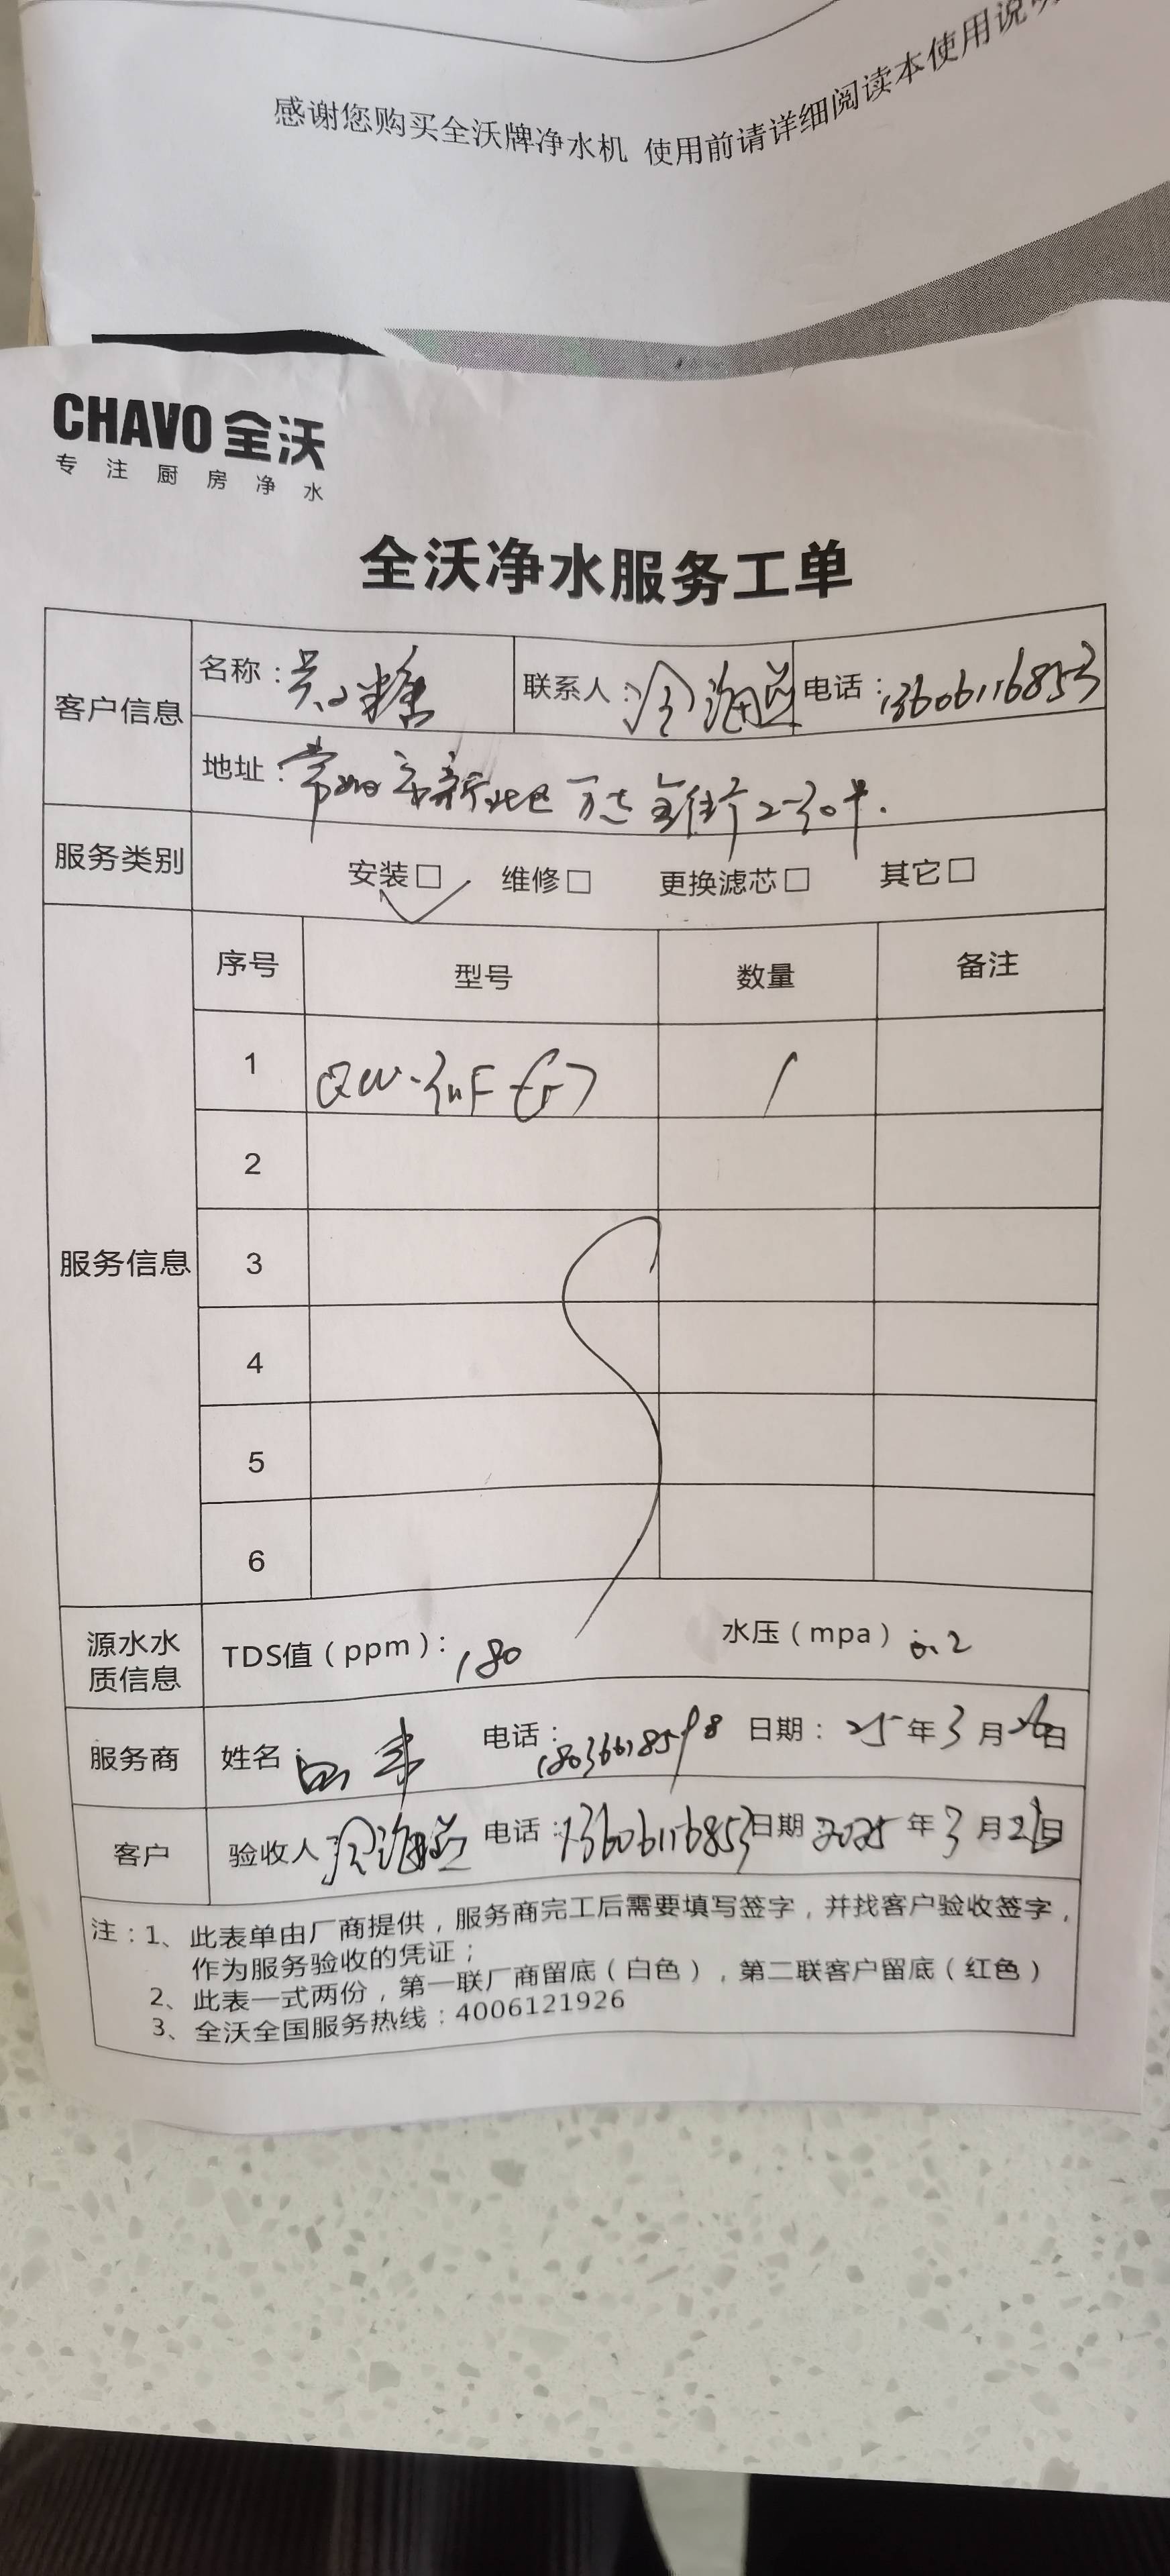 感谢您购买全沃牌净水机 使用前请详细阅读本使用说明
CHAVO 全沃
专注厨房净水
全沃净水服务工单
客户信息 名称: 吴小糖 联系人: 冷海燕 电话: 13606116853
地址: 常州市新北区万达金街2-30号.
服务类别 安装□ 维修□ 更换滤芯□ 其它□
序号 型号 数量 备注
服务信息
1 QW- 1
2
3
4
5
6
源水水质信息 TDS值(ppm): 180 水压(mpa) 0.2
服务商 姓名: 电话: 日期: 25年3月26日
客户 验收人 冷海燕 电话: 13606116853 日期: 2025年3月 日
注:1、此表单由厂商提供,服务商完工后需要填写签字,并找客户验收签字,
作为服务验收的凭证;
2、此表一式两份,第一联厂商留底(白色),第二联客户留底(红色)
3、全沃全国服务热线:4006121926